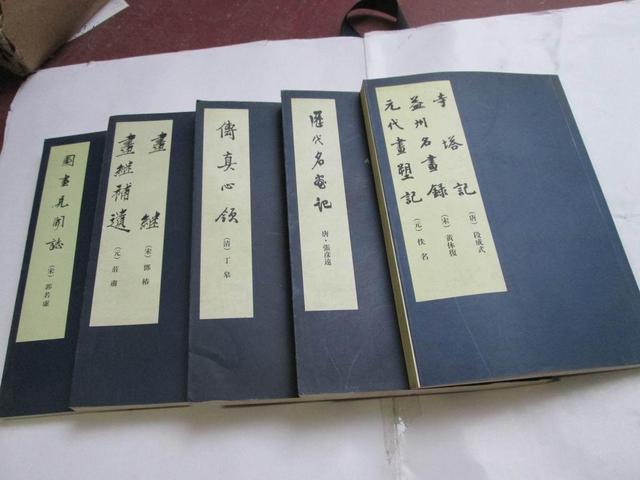 圖畫見聞誌
(宋) 郭若虛
畫繼
(宋) 鄧椿
畫繼補遺
(元) 莊肅
傳真心領
(清) 丁皋
歷代名畫記
唐·張彥遠
寺塔記
(唐) 段成式
益州名畫錄
(宋) 黃休復
元代畫塑記
(元) 佚名